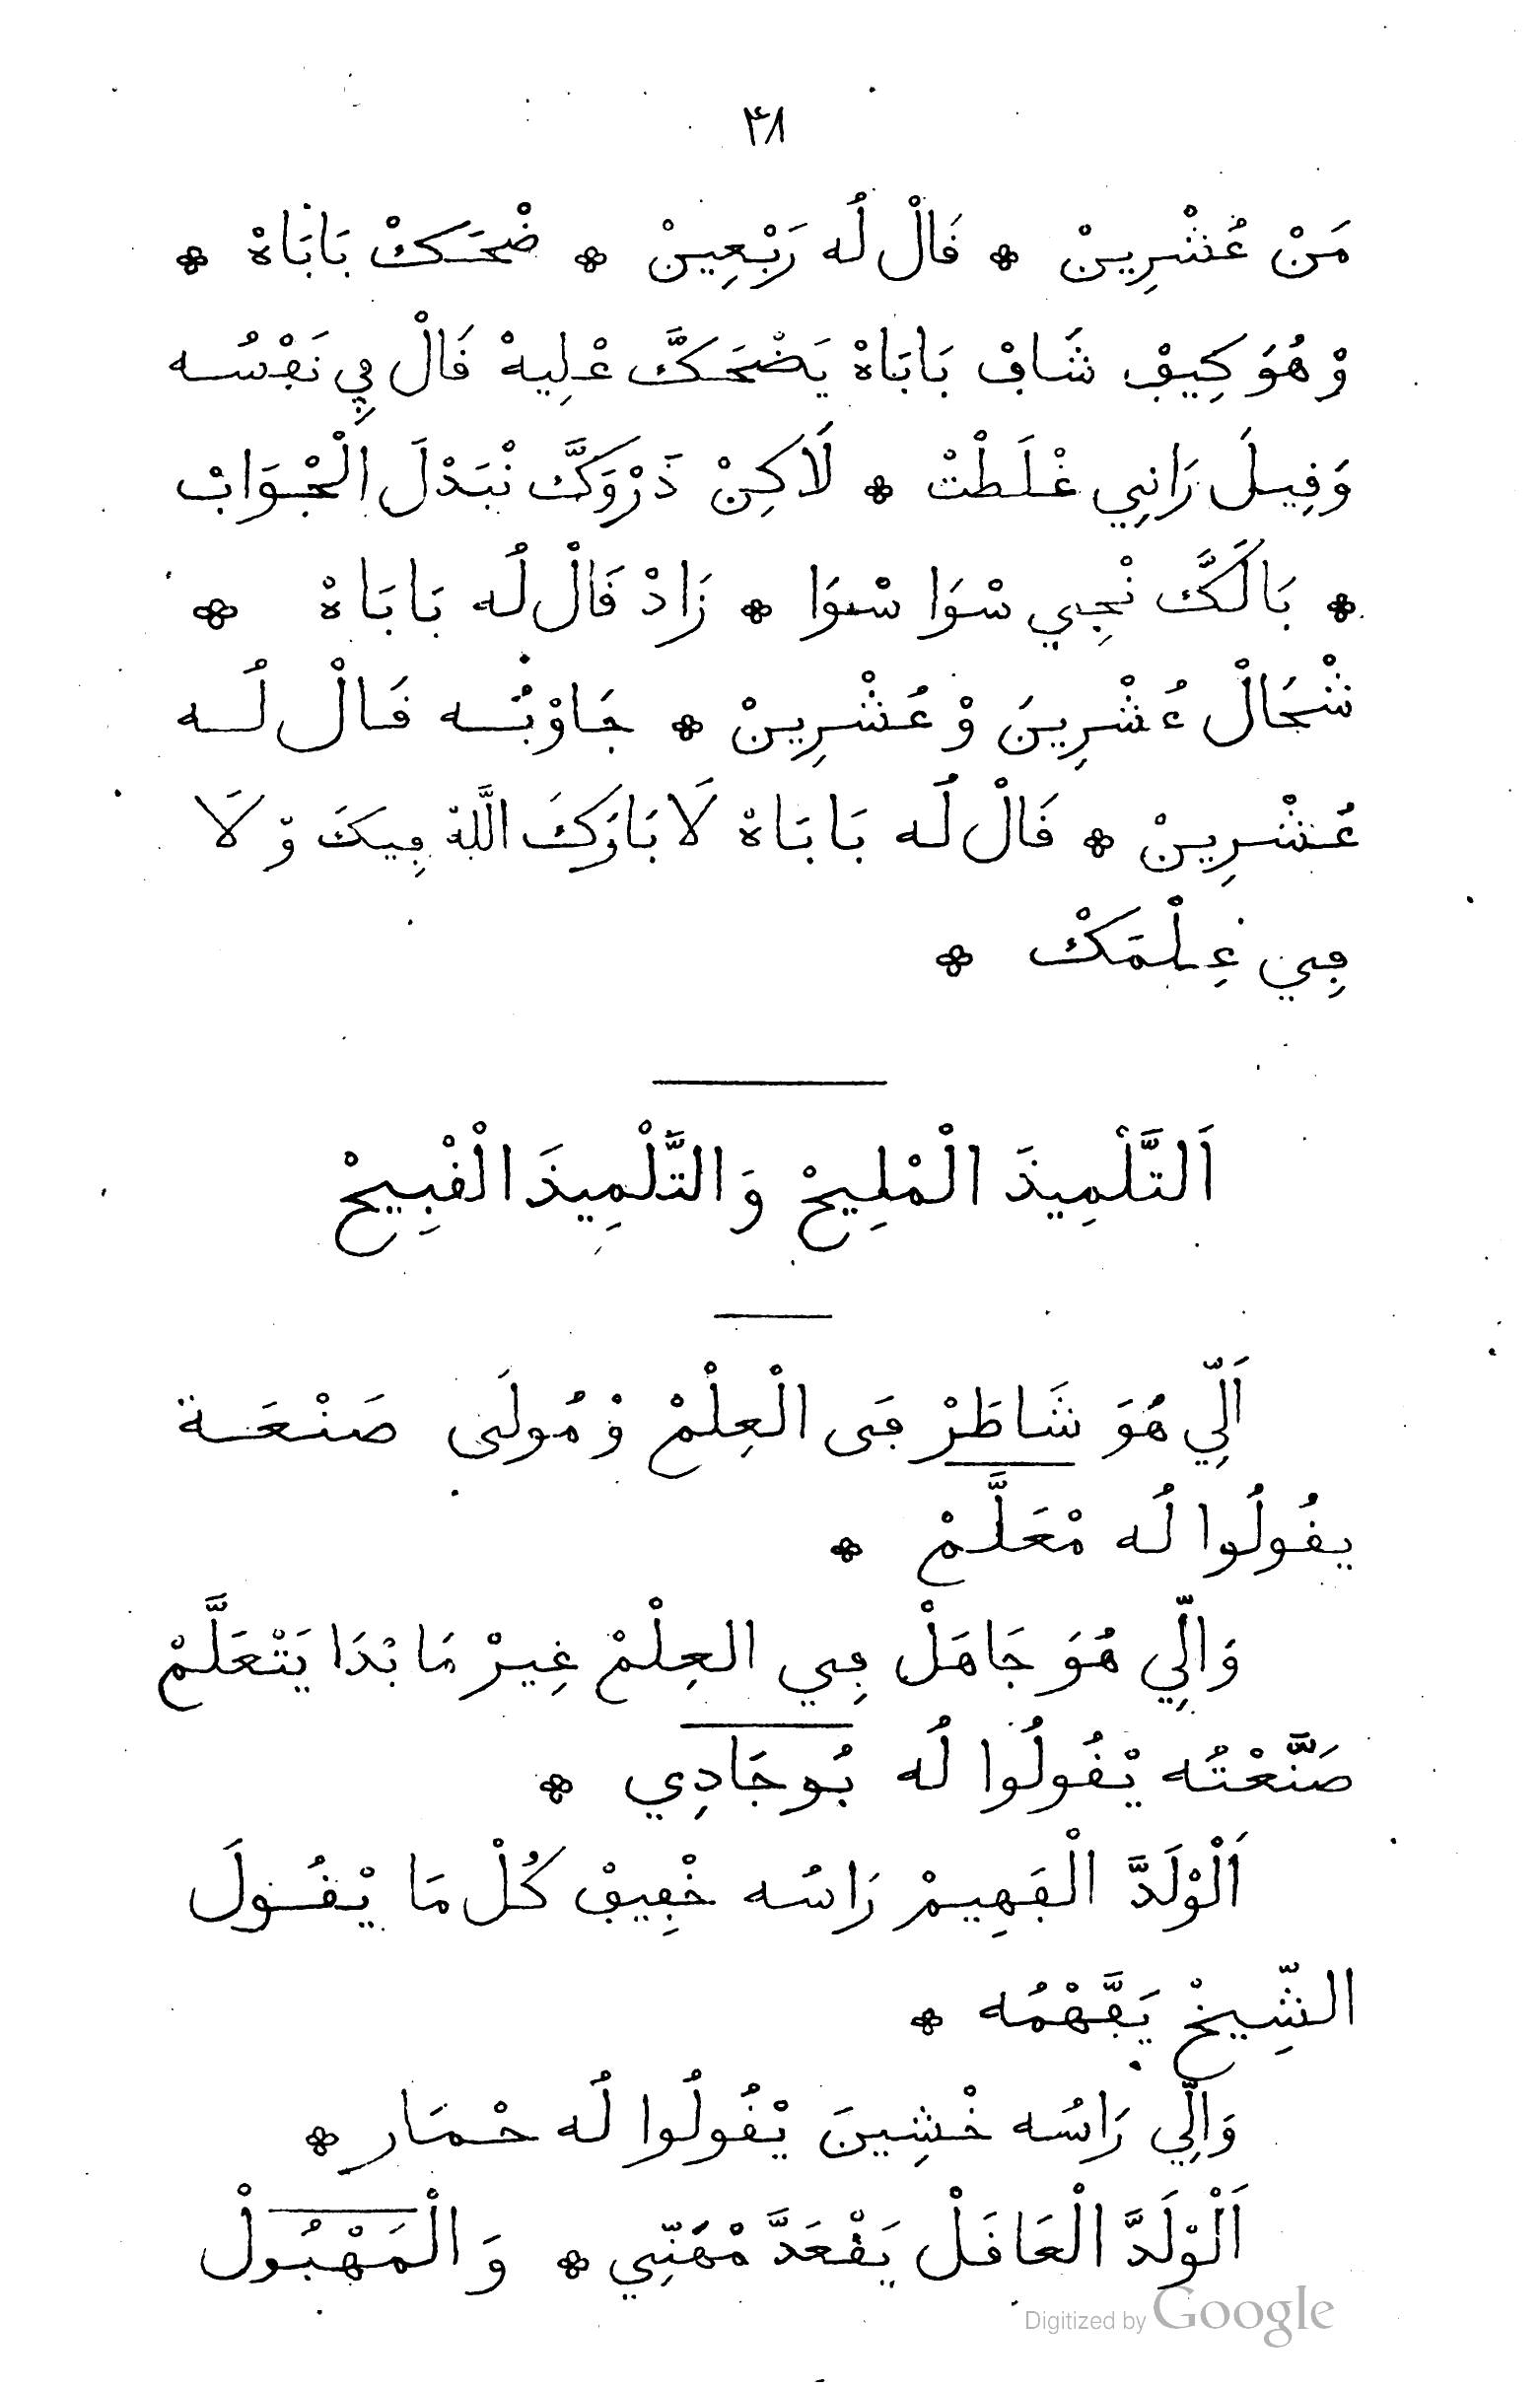 ٣٨
مَنْ عُشْرِينْ * ڧَالْ لُه رَبْعِينْ * ضْحَكْ بَابَاهْ *
وْهُوَ كِيڢْ شَاڢْ بَابَاهْ يَضْحَكَّ عْلِيهْ ڧَالْ ڢِي نَڢْسُه
وَڧِيلَ رَانِي غْلَطْتْ * لَاكِنْ ذَرْوَكَّ نْبَدْلَ الْجْوَابْ
* بَالَكَّ نْجِي سْوَا سْوَا * زَادْ ڧَالْ لُه بَابَاهْ *
شْحَالْ عُشْرِينَ وْ عُشْرِينْ * جَاوْبُه ڧَالْ لُه
عُشْرِينْ * ڧَالْ لُه بَابَاهْ لَا بَارَكَ اللَّهْ ڢِيكَ وْ لَا
ڢِي عِلْمَكْ *
اَلتَّلْمِيذَ الْمْلِيحْ وَالتَّلْمِيذَ الْڧْبِيحْ
اَلِّي هُوَ شَاطَرْ ڢَى الْعِلْمْ وْمُولَى صَنْعَة
يڧُولُوا لُه مْعَلَّمْ *
وَالِّي هُوَ جَاهَلْ ڢِي العِلْمْ غِيرْ مَا بْدَا يَتْعَلَّمْ
صَنَّعْتُه يْڧُولُوا لُه بُوجَادِي *
اَلْوْلَدَّ الْڢَهِيمْ رَاسُه خْڢِيڢْ كُلْ مَا يْڧُولَ
الشِّيخْ يَڢَّهْمُه *
وَالِّي رَاسُه خْشِينَ يْڧُولُوا لُه حْمَار *
اَلْوْلَدَّ الْعَاڧَلْ يَڧْعَدَّ مْهَنِّي * وَالْمَهْبُولْ
Digitized by Google